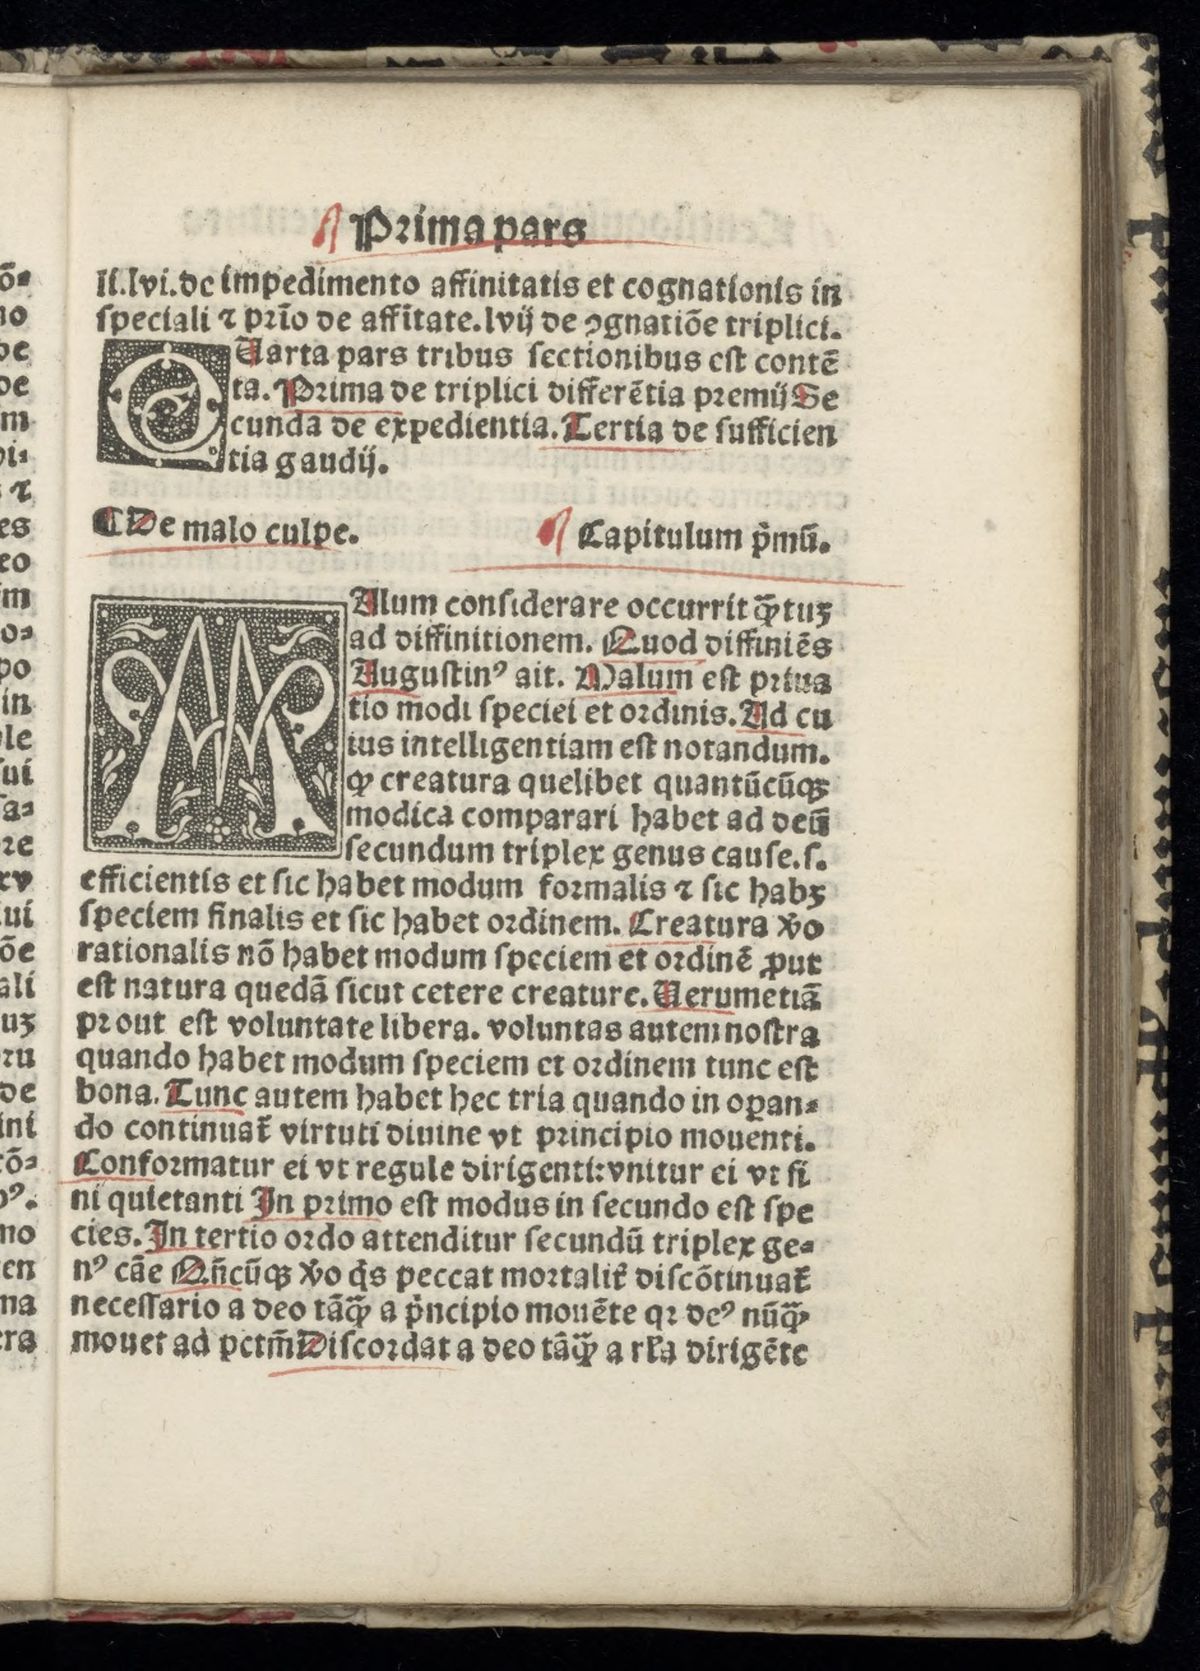 Prima pars
li.lvi.de impedimento affinitatis et cognationis in
speciali ⁊ prīo de affītate.lvij de ꝯgnatiōe triplici.
QUarta pars tribus sectionibus est contē
ta. Prima de triplici differētia premij Se
cunda de expedientia. Tertia de sufficien
tia gaudij.
¶ De malo culpe.
Capitulum p̄mū.
MAlum considerare occurrit q̄ꝫtuꝫ
ad diffinitionem. Quod diffiniēs
Augustinꝰ ait. Malum est priua
tio modi speciei et ordinis. Ad cu
ius intelligentiam est notandum.
ꝙ creatura quelibet quantūcūqꝫ
modica comparari habet ad deū
secundum triplex genus cause.s.
efficientis et sic habet modum formalis ⁊ sic habꝫ
speciem finalis et sic habet ordinem. Creatura v̊o
rationalis nō habet modum speciem et ordinē ꝓut
est natura quedā sicut cetere creature. Uerumetiā
prout est voluntate libera. voluntas autem nostra
quando habet modum speciem et ordinem tunc est
bona. Tunc autem habet hec tria quando in oꝑan-
do continuat᷑ virtuti diuine vt principio mouenti.
Conformatur ei vt regule dirigenti:vnitur ei vt fi
ni quietanti In primo est modus in secundo est spe
cies. In tertio ordo attenditur secundū triplex ge-
nꝰ cāe Qn̄cūqꝫ v̊o q̇s peccat mortalit᷑ discōtinuat᷑
necessario a deo tāq̄ꝫ a p̄ncipio mouēte qꝛ deꝰ nūq̄ꝫ
mouet ad pctm̄ Discordat a deo tāq̄ꝫ a rl̄a dirigēte
ō-
no
de
m
⁊
es
eo
im
o-
po
in
le
sui
sa-
re
rv
lui
ōe
ali
uꝫ
ru
de
ini
tō-
ꝰ.
mo
en
ma
era